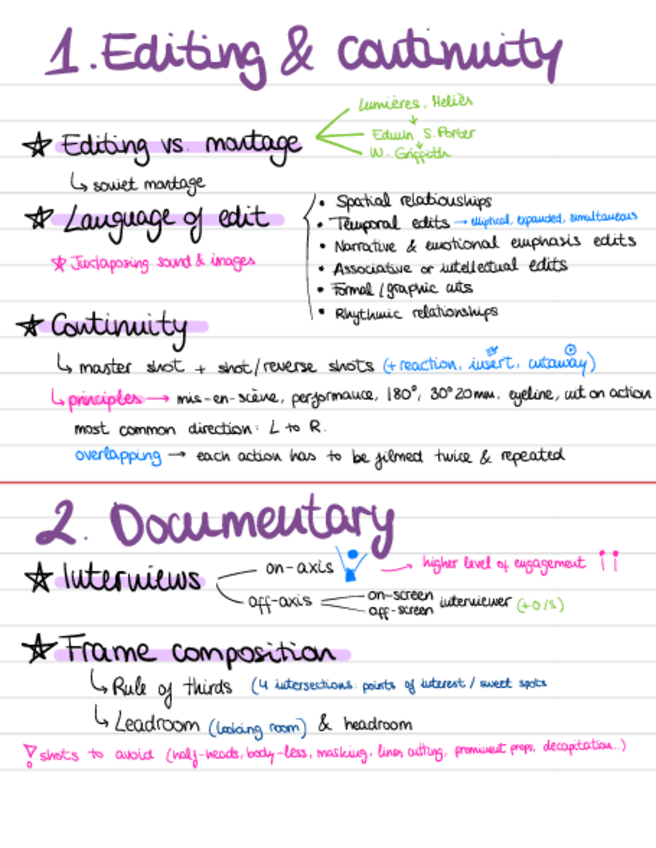 1. Editing & continuity
Lumières, Meliès
☆ Editing vs. montage
Edwin S. Porter
W. Griffith
↳ soviet montage
• Spatial relationships
☆ Language of edit
• Temporal edits → elliptical, expanded, simultaneous
• Narrative & emotional emphasis edits
☆ Juxtaposing sound & images
• Associative or intellectual edits
• Formal / graphic cuts
• Rhythmic relationships
☆ Continuity
↳ master shot + shot/reverse shots (+ reaction, insert, cutaway)
↳ principles → mis-en-scène, performance, 180°, 30° 20mm. eyeline, cut on action
most common direction: L to R.
overlapping → each action has to be filmed twice & repeated
2. Documentary
on-axis → higher level of engagement !!
☆ Interviews
off-axis on-screen
off-screen interviewer (+O/S)
☆ Frame composition
↳ Rule of thirds (4 intersections: points of interest / sweet spots
↳ Leadroom (looking room) & headroom
shots to avoid (half-heads, body-less, masking, linen cutting, prominent props, decapitation...)